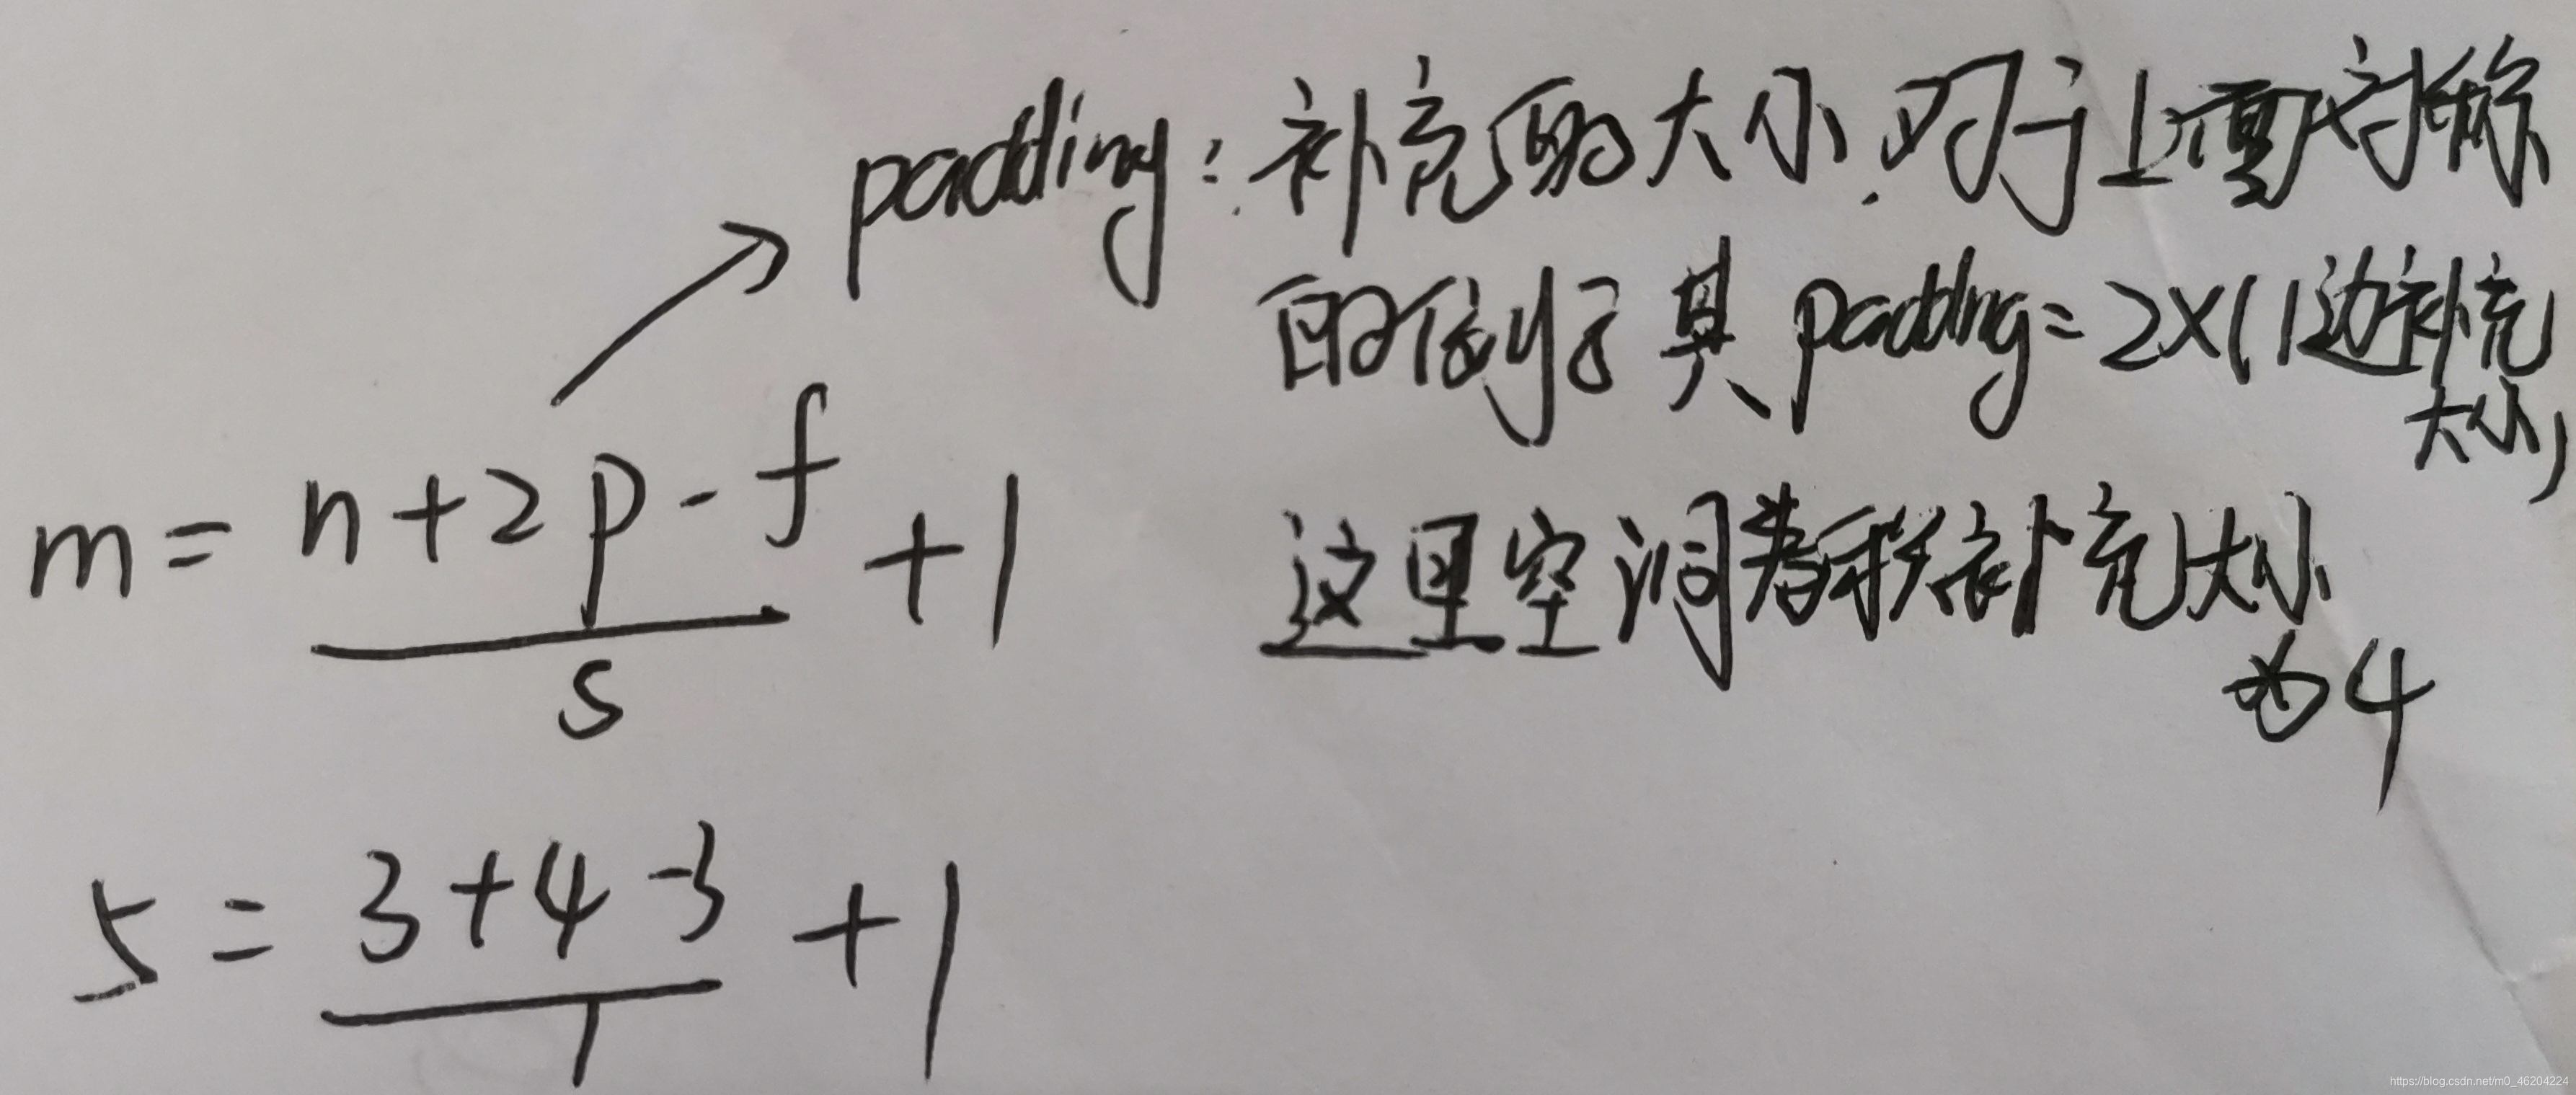 padding: 补充的大小.对于上面对称
的例子其padding=2×(1边补充
大小)
这里空洞卷积补充大小
为4
m = (n+2p-f)/s +1
5 = (3+4-3)/1 +1
https://blog.csdn.net/m0_46204224